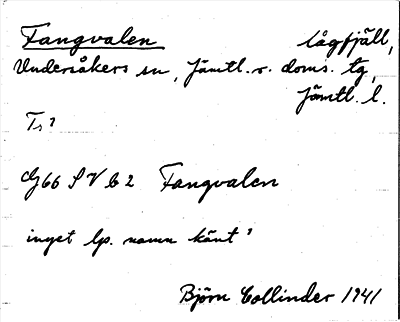 Fangvalen lågfjäll,
Undersåkers sn, Jämtl. v. doms. tg,
Jämtl. l.
Ts?
G66 SV b 2 Fangvalen
inget lp. namn känt?
Björn Collinder 1941